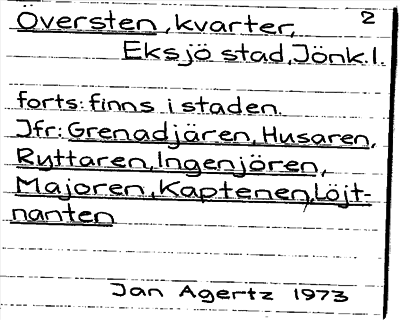 Översten, kvarter, 2
Eksjö stad, Jönk.l.
forts: finns i staden.
Jfr: Grenadjären, Husaren,
Ryttaren, Ingenjören,
Majoren, Kaptenen, Löjt-
nanten
Jan Agertz 1973